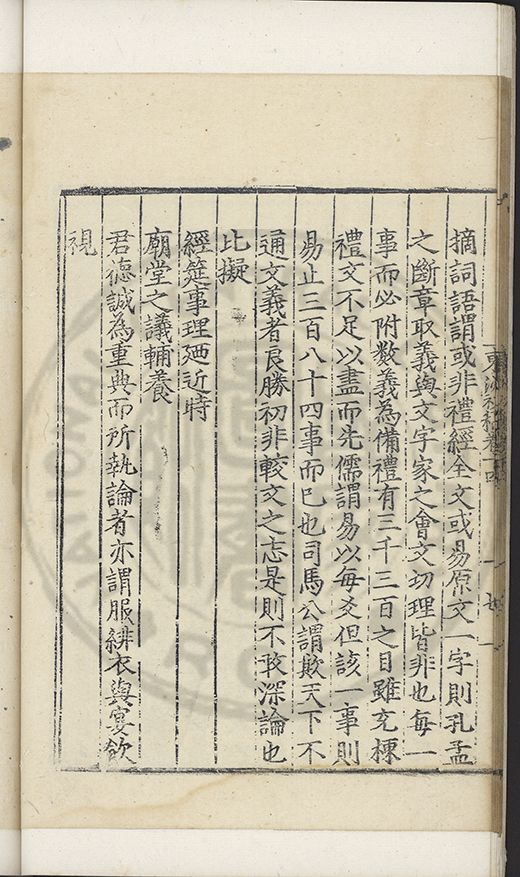 摘詞語謂或非禮經全文或易原文一字則孔孟
之斷章取義與文字家之會文切理皆非也每一
事而必附数義為備禮有三千三百之目雖充棟
禮文不足以盡而先儒謂易以每爻但該一事則
易止三百八十四事而已也司馬公謂欺天下不
通文義者良勝初非較文之志是則不敢深論也
比擬
經筵事理廼近時
廟堂之議輔養
君德誠為重典而所執論者亦謂服緋衣與宴飲
視